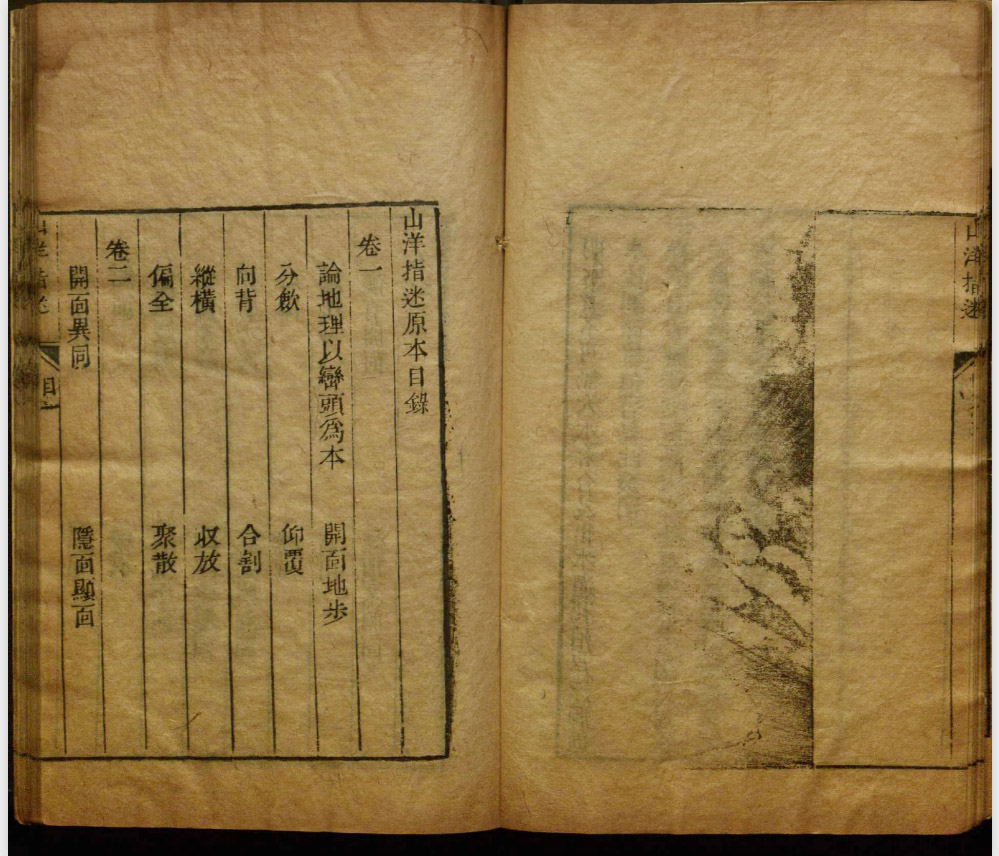 山洋指迷
山洋指迷原本目錄
卷一
論地理以巒頭爲本 開面地步
分斂 仰覆
向背 合割
縱橫 収放
偏全 聚散
卷二
開面異同 隱面顯面
山洋指迷
目